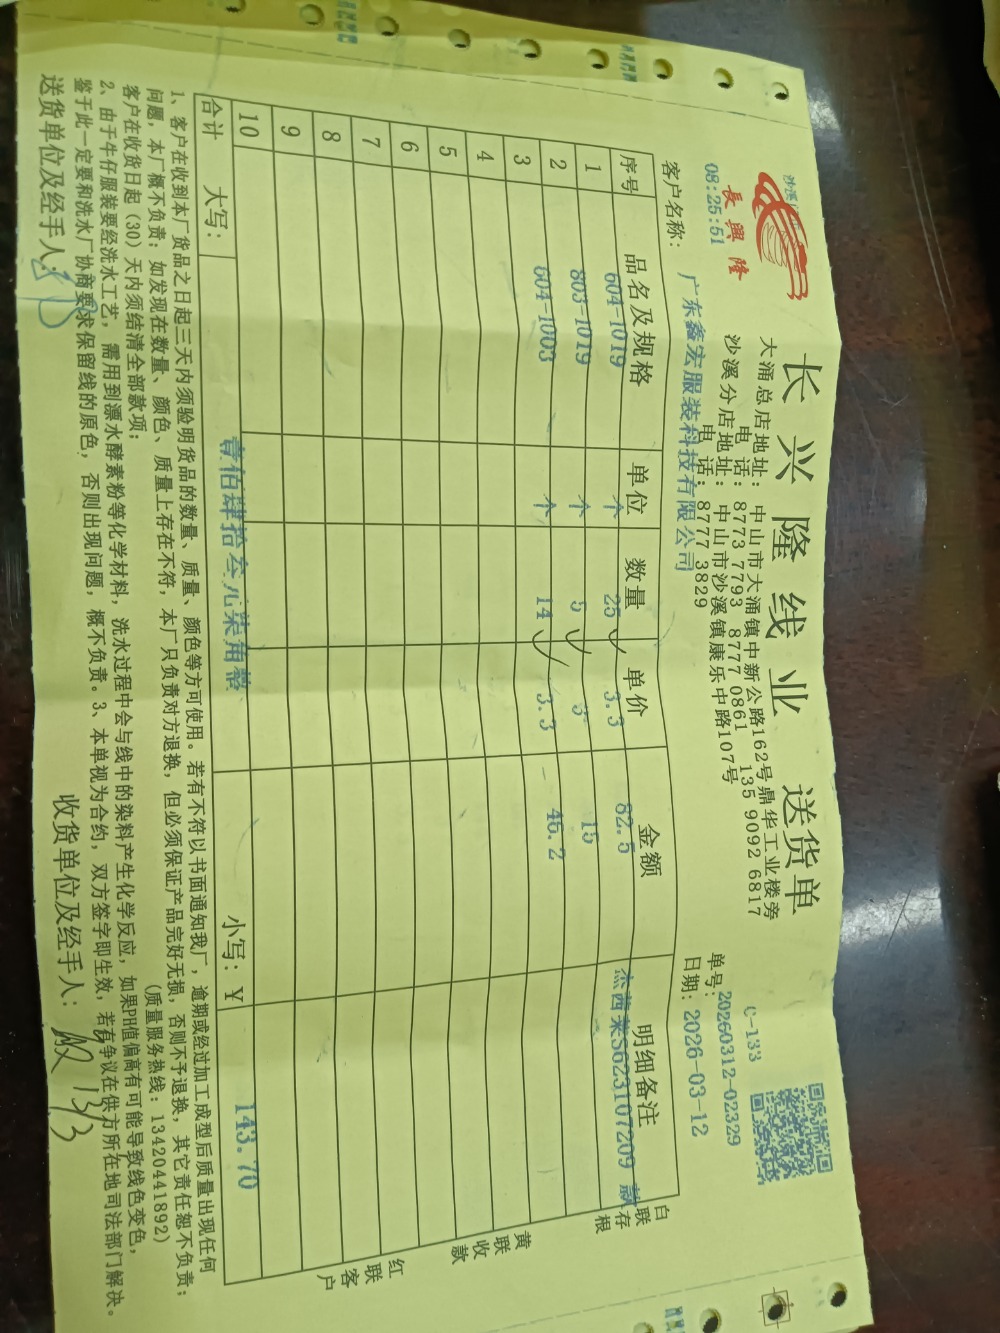 長興隆
长兴隆线业 送货单
大涌总店地址: 中山市大涌镇中新公路162号鼎华工业楼旁
电 话: 8773 7793 8777 0861 135 9092 6817
沙溪分店地址: 中山市沙溪镇康乐中路107号
电 话: 8777 3829
08:25:51
C-133
单号: 20260312-02329
日期: 2026-03-12
客户名称: 广东鑫宏服装科技有限公司
序号 品名及规格 单位 数量 单价 金额 明细备注
1 604-1019 个 25 3.3 82.5 杰茜莱S623107209 款
2 803-1019 个 5 3 15
3 604-1003 个 14 3.3 46.2
4
5
6
7
8
9
10
合计 大写: 壹佰肆拾叁元柒角整 小写: ¥ 143.70
白联存根
黄联收款
红联客户
1、客户在收到本厂货品之日起三天内须验明货品的数量、质量、颜色等方可使用。若有不符以书面通知我厂，逾期或经过加工成型后质量出现任何
问题，本厂概不负责；如发现在数量、颜色、质量上存在不符，本厂只负责对方退换，但必须保证产品完好无损，否则不予退换，其它责任恕不负责；
客户在收货日起（30）天内须结清全部款项； （质量服务热线：13420441892）
2、由于牛仔服装要经洗水工艺，需用到漂水酵素粉等化学材料，洗水过程中会与线中的染料产生化学反应，如果PH值偏高有可能导致线色变色，
鉴于此一定要和洗水厂协商要求保留线的原色，否则出现问题，概不负责。3、本单视为合约，双方签字即生效，若有争议在供方所在地司法部门解决。
送货单位及经手人: 收货单位及经手人: 13/3